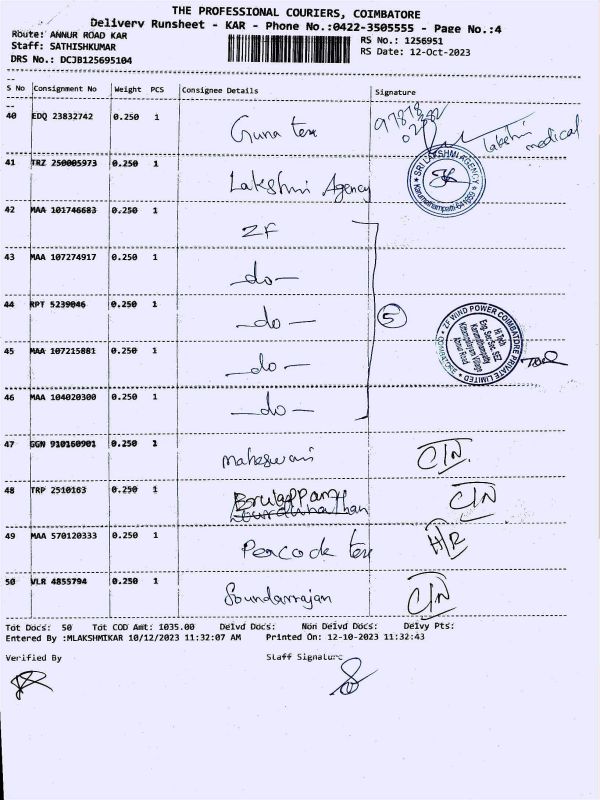 THE PROFESSIONAL COURIERS, COIMBATORE
Delivery Runsheet - KAR - Phone No.:0422-3505555 - Page No.:4
Route: ANNUR ROAD KAR
RS No.: 1256951
Staff: SATHISHKUMAR
RS Date: 12-Oct-2023
DRS No.: DCJB125695104
S No Consignment No Weight PCS Consignee Details Signature
40 EDQ 23832742 0.250 1 Guna tex
lakshmi medical
41 TRZ 250005973 0.250 1 Lakshmi Agency
SRI LAKSHMI AGENCY
42 MAA 101746683 0.250 1 ZF
43 MAA 107274917 0.250 1 -do-
44 RPT 5239046 0.250 1 -do- 5
ZF WIND POWER COIMBATORE PRIVATE LIMITED
Hi Tech
45 MAA 107215881 0.250 1 -do-
46 MAA 104020300 0.250 1 -do-
47 GGN 910160901 0.250 1 maheswari C/N
48 TRP 2510163 0.250 1 C/N
49 MAA 570120333 0.250 1 Peacock tex H/R
50 VLR 4855794 0.250 1 Soundarrajan C/N
Tot Docs: 50 Tot COD Amt: 1035.00 Delvd Docs: Non Delvd Docs: Delvy Pts:
Entered By :MLAKSHMIKAR 10/12/2023 11:32:07 AM Printed On: 12-10-2023 11:32:43
Verified By Staff Signature